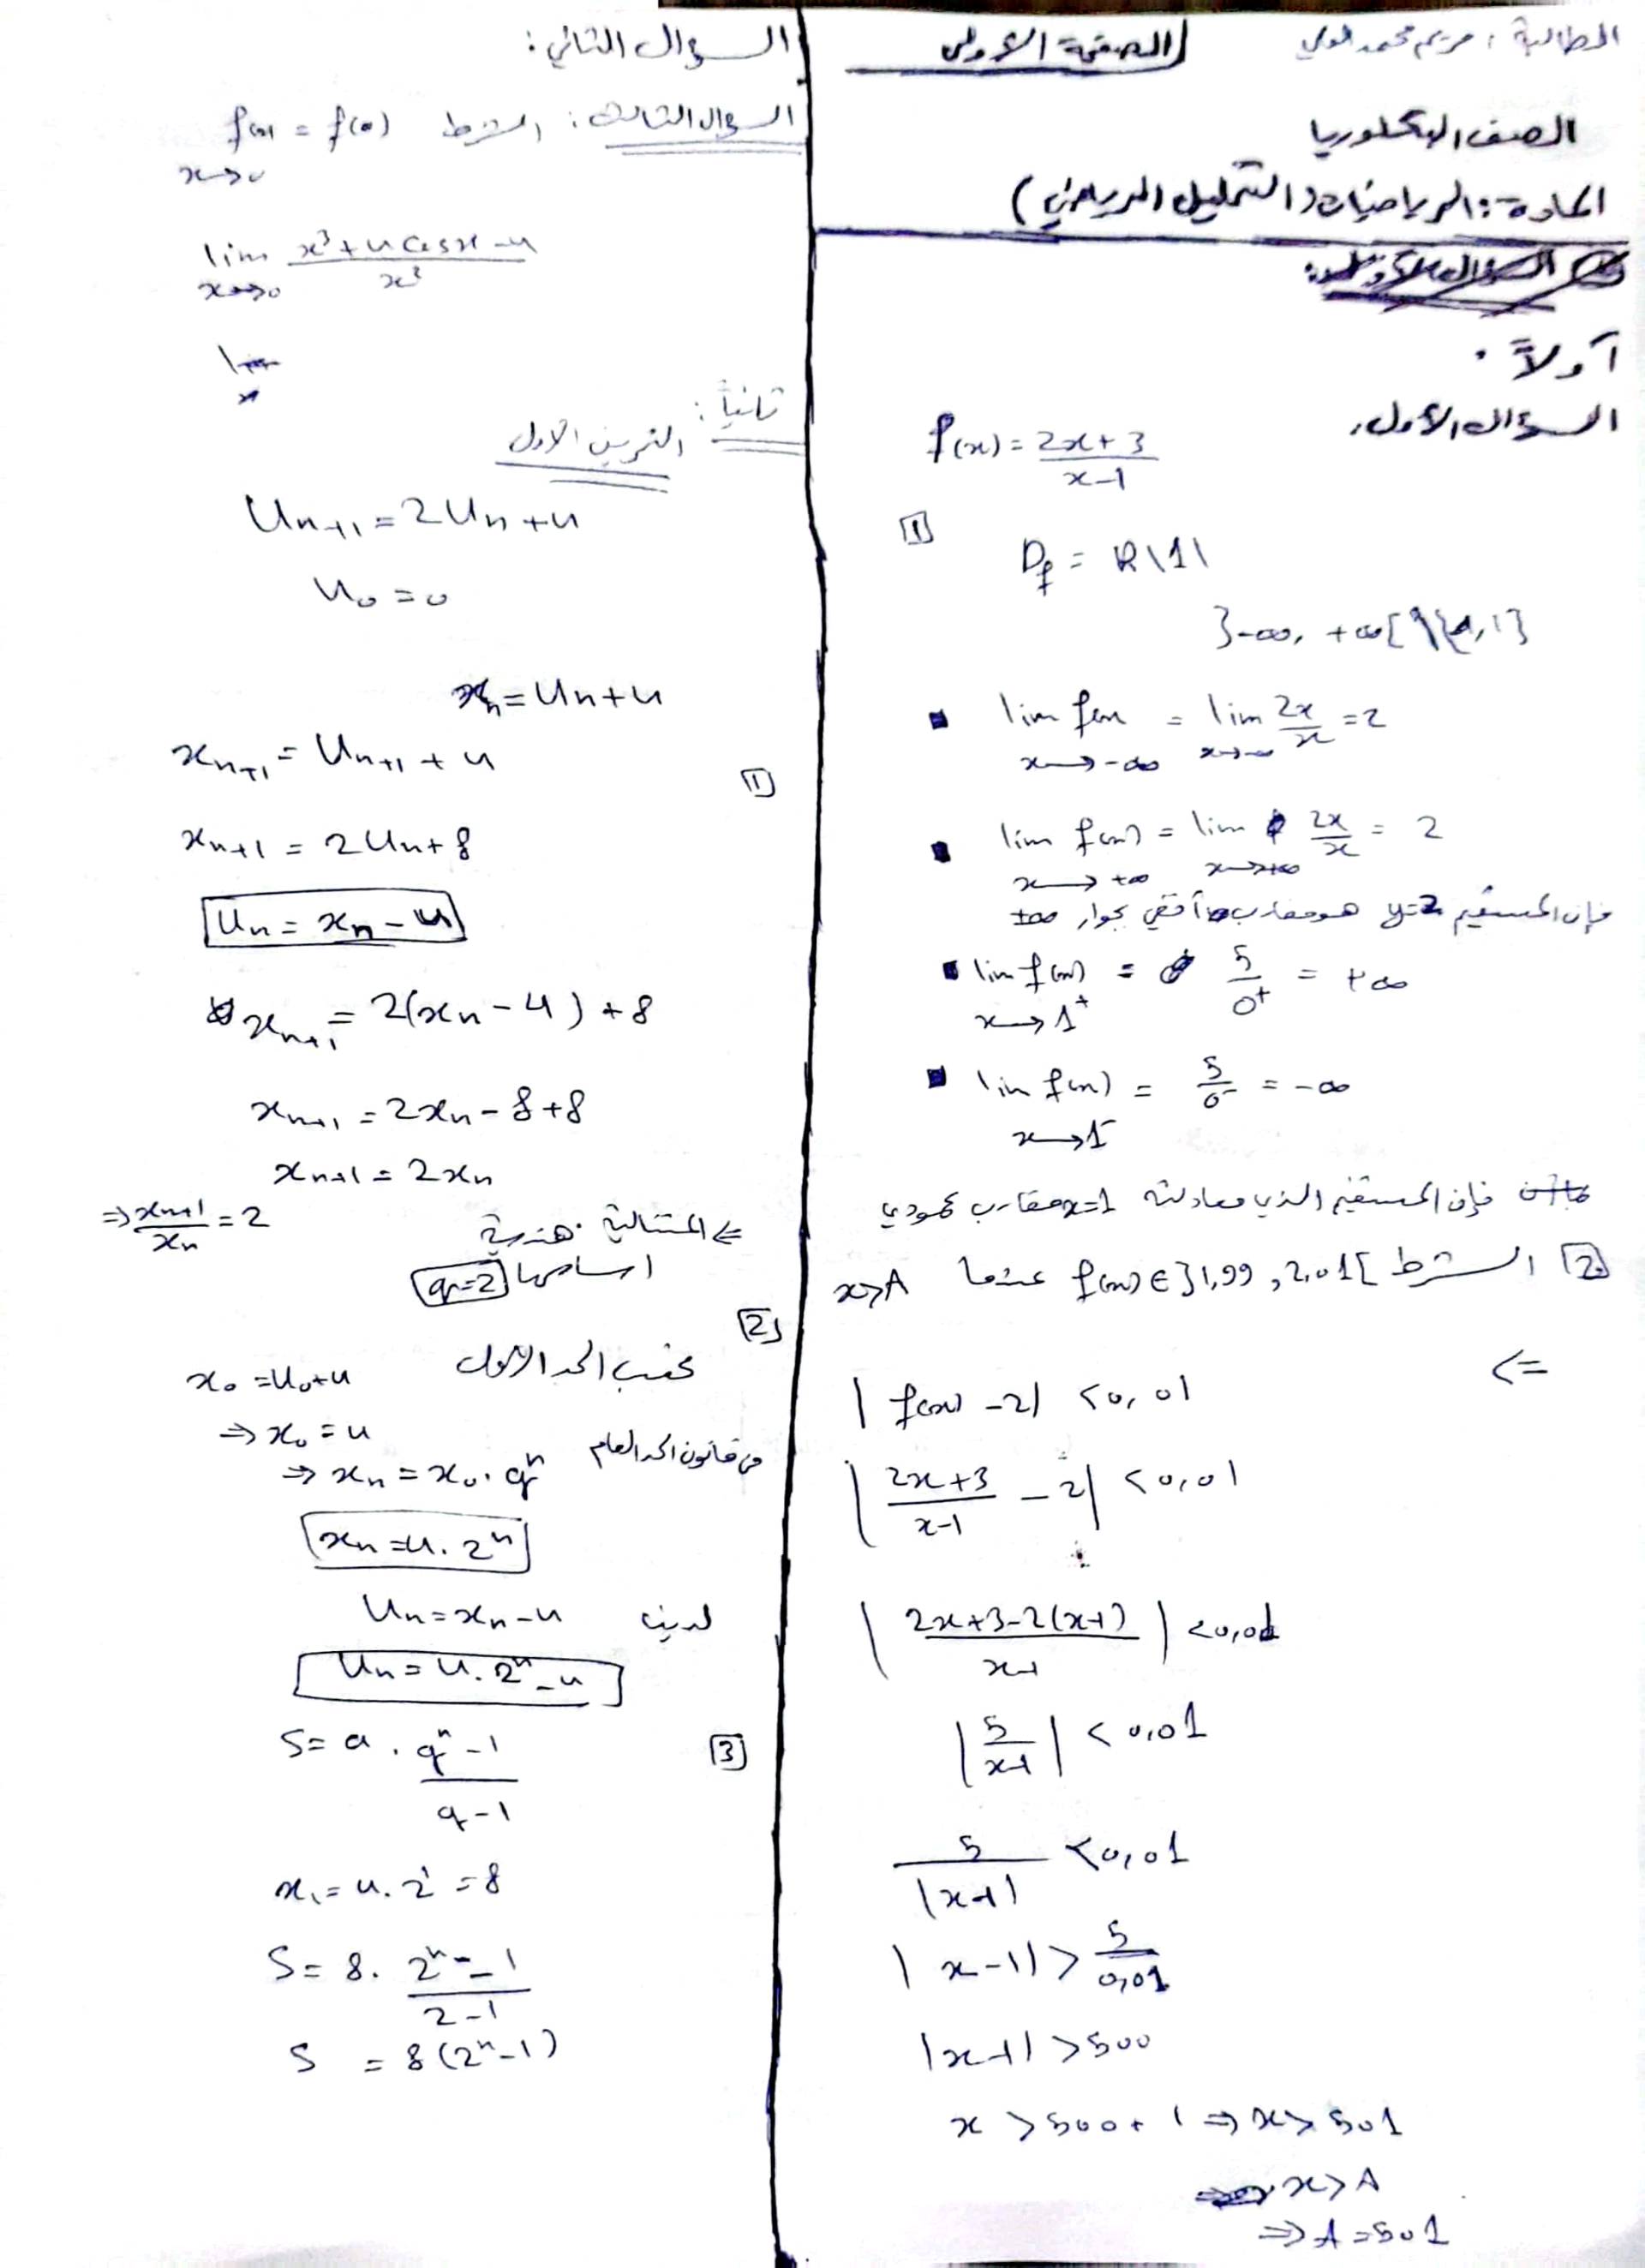 الطالبة : مريم محمد لولي
الصفحة الاولى
الصف البكلوريا
المادة : الرياضيات (التحليل الرياضي)
أولاً :
السؤال الأول:
f(x) = \frac{2x+3}{x-1}
1
D_f = R\1\
]-∞, +∞[ \{1}
lim f(x) = lim 2x/x = 2
x→-∞ x→-∞
lim f(x) = lim 2x/x = 2
x→+∞ x→+∞
فإن المستقيم y=2 هو مقارب أفقي بجوار ±∞
lim f(x) = 5/0+ = +∞
x→1+
lim f(x) = 5/0- = -∞
x→1-
فإن المستقيم الذي معادلته x=1 مقارب عمودي
2 الشرط f(x) ∈ ]1,99 , 2,01[ عندما x>A
<=
|f(x) - 2| < 0,01
|(2x+3)/(x-1) - 2| < 0,01
|(2x+3-2(x-1))/(x-1)| < 0,01
|5/(x-1)| < 0,01
5/|x-1| < 0,01
|x-1| > 5/0,01
|x-1| > 500
x > 500 + 1 ⇒ x > 501
x > A
⇒ A = 501
السؤال الثاني :
السؤال الثالث : الشرط f(x) = f(0)
x→0
lim (x³+4cosx-4)/x²
x→0
ثانياً :
التمرين الاول
Un+1 = 2Un + 4
U0 = 0
xn = Un + 4
1
xn+1 = Un+1 + 4
xn+1 = 2Un + 8
Un = xn - 4
xn+1 = 2(xn - 4) + 8
xn+1 = 2xn - 8 + 8
xn+1 = 2xn
⇒ xn+1/xn = 2
⇐ المتتالية هندسية
اساسها q=2
2
نحسب الحد الاول
x0 = U0 + 4
⇒ x0 = 4
من قانون الحد العام
⇒ xn = x0 . qⁿ
xn = 4 . 2ⁿ
لدينا Un = xn - 4
Un = 4 . 2ⁿ - 4
3
S = a . (qⁿ - 1)/(q - 1)
x1 = 4 . 2¹ = 8
S = 8 . (2ⁿ - 1)/(2 - 1)
S = 8 (2ⁿ - 1)